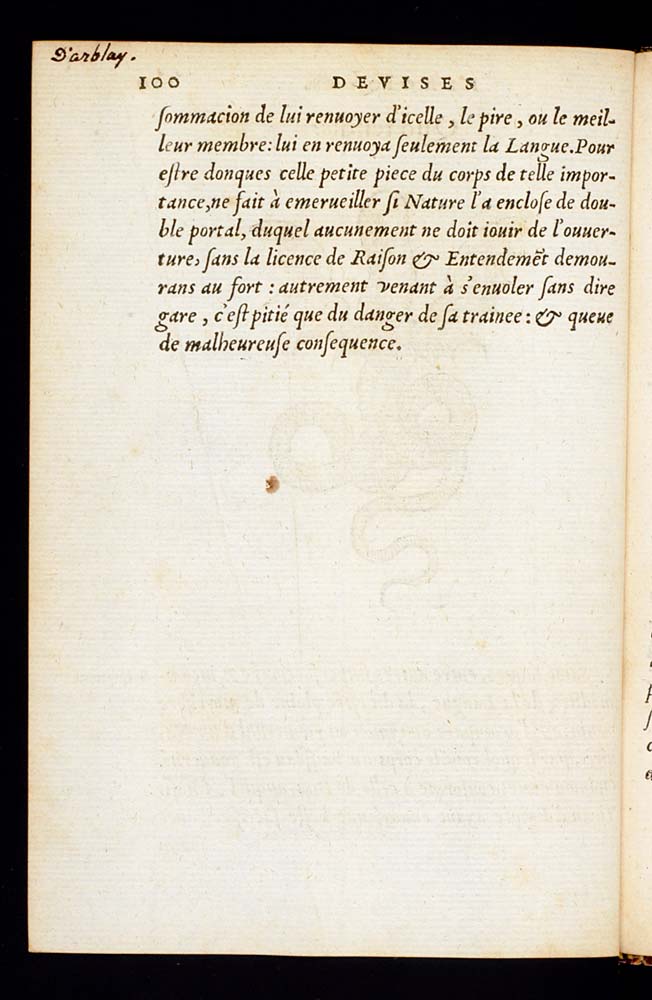 D'arblay.
100 DEVISES
ſommacion de lui renuoyer d'icelle, le pire, ou le meil-
leur membre: lui en renuoya ſeulement la Langue. Pour
eſtre donques celle petite piece du corps de telle impor-
tance, ne fait à emerueiller ſi Nature l'a encloſe de dou-
ble portal, duquel aucunement ne doit iouir de l'ouuer-
ture, ſans la licence de Raiſon & Entendemẽt demou-
rans au fort : autrement venant à s'enuoler ſans dire
gare, c'eſt pitié que du danger de ſa trainee: & queue
de malheureuſe conſequence.